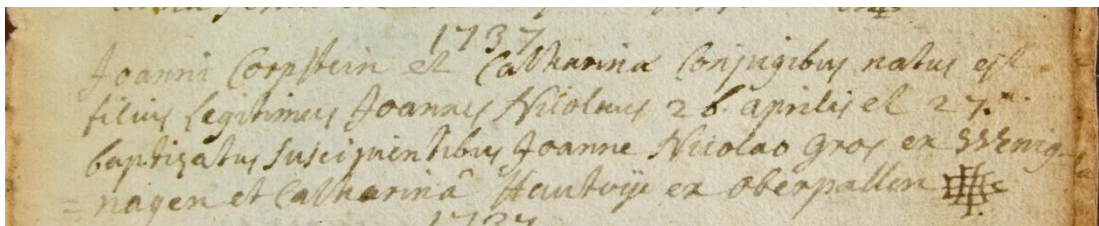 1737
Joanni Corpstein et Catharina Conjugibus natus est
filius legitimus Joannes Nicolaus 26 aprilis et 27.
baptizatus suscipientibus Joanne Nicolao Gros ex
= nagen et Catharinâ ex Oberpallen
1737